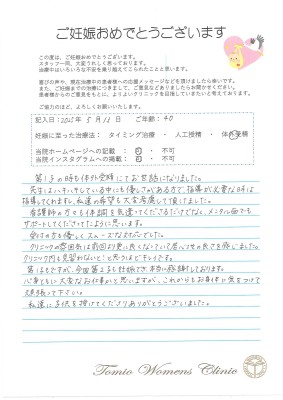 ご妊娠おめでとうございます
この度は、ご妊娠おめでとうございます。
スタッフ一同、大変うれしく思っております。
治療中はいろいろな不安を乗り越えてこられたことと思います。
喜びの声や、現在治療中の患者様への応援メッセージなどを頂けましたら幸いです。
また、ご妊娠までの治療につきまして、ご意見などありましたらお聞かせください。
患者様からのご意見をもとに、よりよいクリニックを目指していきたいと考えております。
ご協力のほど、よろしくお願いいたします。
記入日：2025年5月12日 ご年齢：40
妊娠に至った治療法： タイミング治療 ・ 人工授精 ・ 体外受精
当院ホームページへの記載： 可 ・ 不可
当院インスタグラムへの掲載： 可 ・ 不可
第1子の時も体外受精にてお世話になりました。
先生はハキハキしている中にも優しさがある方で、指導が必要な時は
指導してくれますし、私達の希望も大変考慮して頂けました。
看護師の方々も体調を気遣ってくださるだけでなく、メンタル面でも
サポートしてくださったように思います。
受付の方も優しく、スムーズな対応でした。
クリニックの雰囲気は前回より更に良くなっていて居心地の良さを感じました。
クリニック内も見習わないと!と思うほどキレイです。
第1子もですが、今回第2子も妊娠でき、本当に感謝しております。
心身ともに大変なお仕事かと思いますが、これからもお身体に気をつけて
頑張って下さい。
私達に子供を授けてくださりありがとうございました。
Tomio Womens Clinic